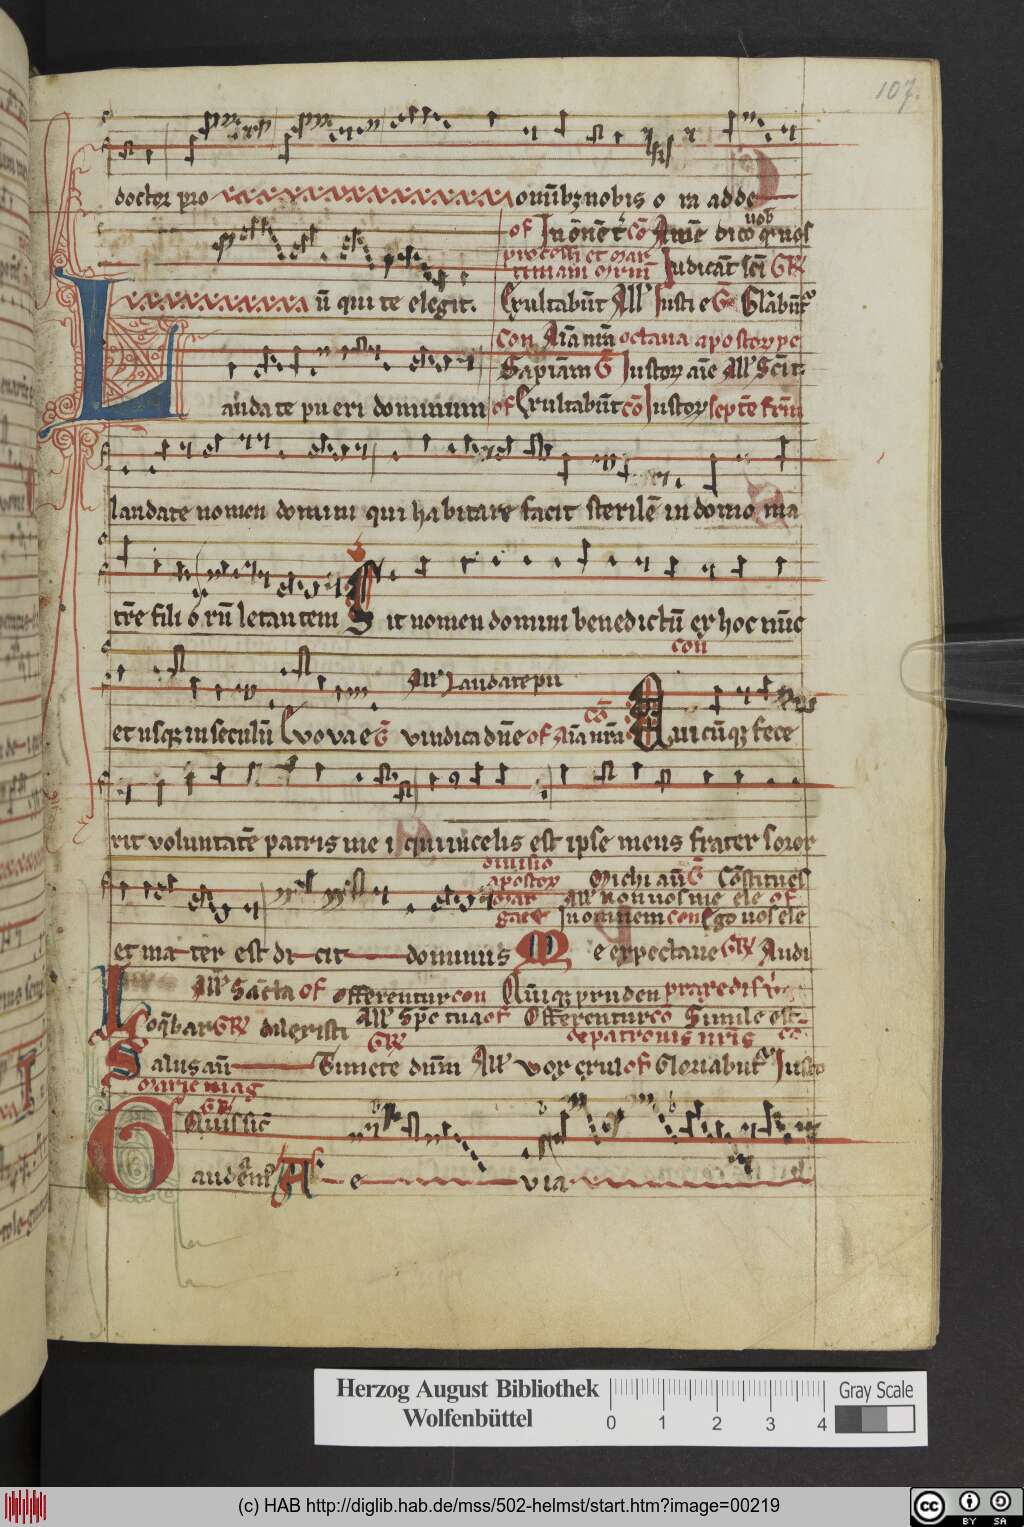 107.
docter pro omībꝫ nobis o ra ad de
of In om̄e t̄r cō Amē dico uob qͥ uos
processi et mar
tiniani mrm̄ Iudicāt sc̄i GR
ū qui te elegit. Exultabūt All' Iusti e G Glābūtͬ
Con Aīa nr̄a octaua apostorꝝ pe
Sapiām G Iustoꝝ aīe All' Sc̄i t
audate pueri dominum of Exultabūt cō Iustoꝝ septē frm̄
laudate nomen domini qui habitare facit sterilē in domo ma
tr̄e filiorū letantem Sit nomen domini benedictū ex hoc nūc
con
All' Laudate pu
et usqꝫ in seculū Evovae G vindica dn̄e of Aīa nr̄a cō Quicūqꝫ fece
rit voluntatē patris mei qui in celis est ipse meus frater soror
diuisio
apostoꝝ Michi aū G Cōstitues
All' non uos me ele of
In omnem con Ego uos ele
et mater est dicit dominus Me expectaue GR Audi
All' Sācta of offerentur con Quīqꝫ pruden praxedis uirg
Loqͥbar GR dilexisti All' Spe tua of Offerentur cō Simile est
de patronis nris cō
GR
Salus aū Timete dnm̄ All' vox exul of Gloriabūtͬ Iusto
marie mag
GR
Quis sic
Gaudeamꝰ A e via
Herzog August Bibliothek
Wolfenbüttel
0 1 2 3 4
Gray Scale
(c) HAB http://diglib.hab.de/mss/502-helmst/start.htm?image=00219
cc BY SA